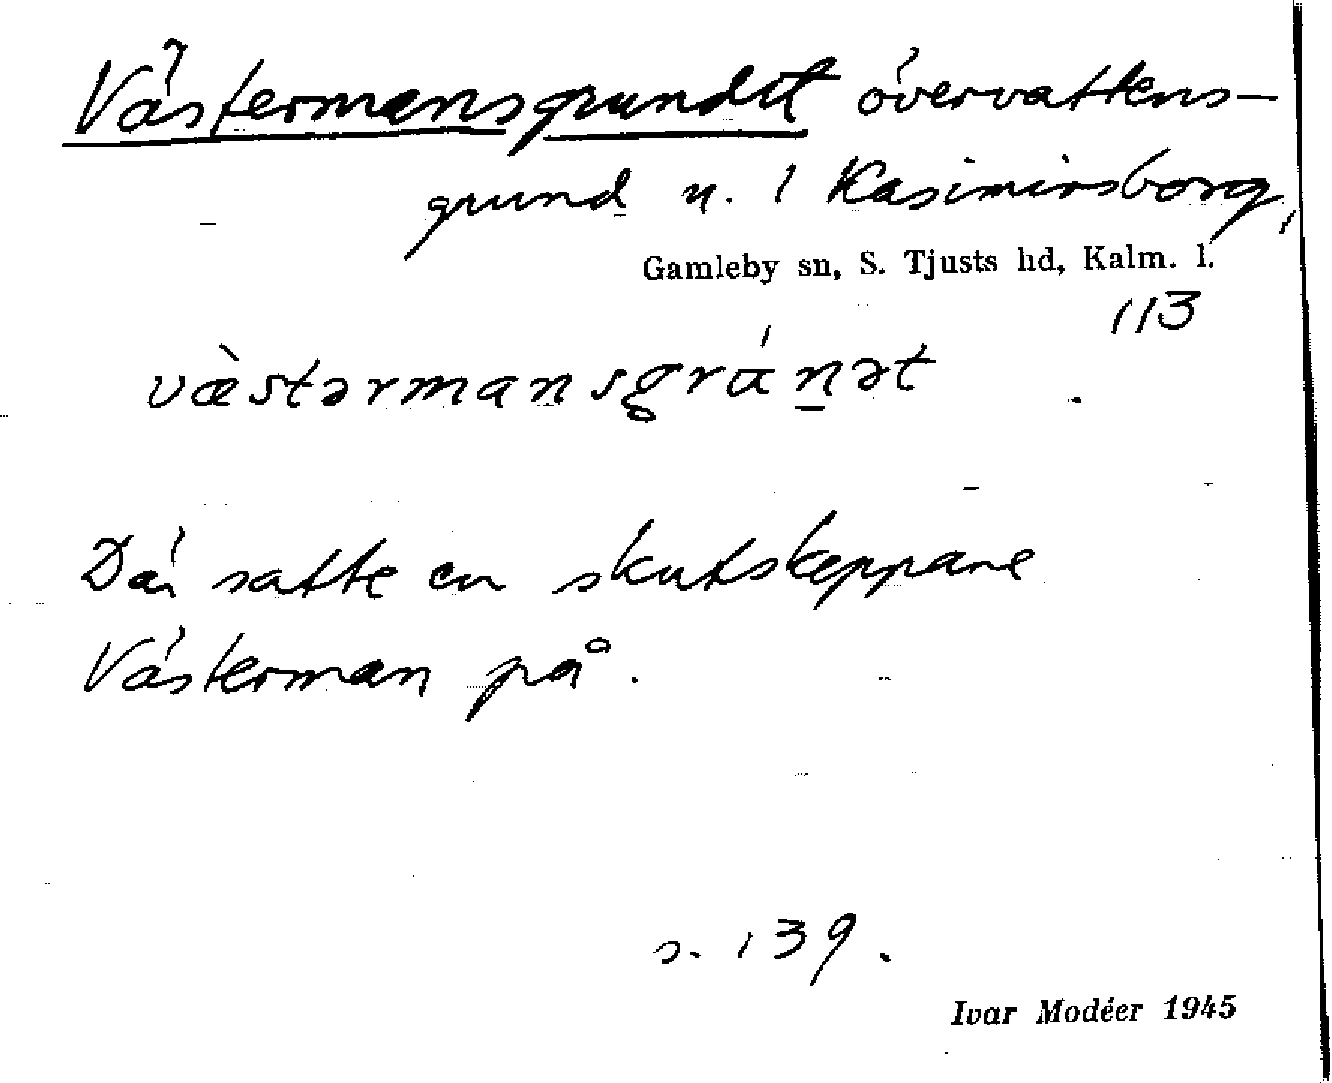 Västermansgrundet övervattens-
grund n. 1 Kasimirsborg,
Gamleby sn, S. Tjusts hd, Kalm. l.
113
væ̀stərmansgránət
Där satte en skutskeppare
Västerman på.
s. 139.
Ivar Modéer 1945